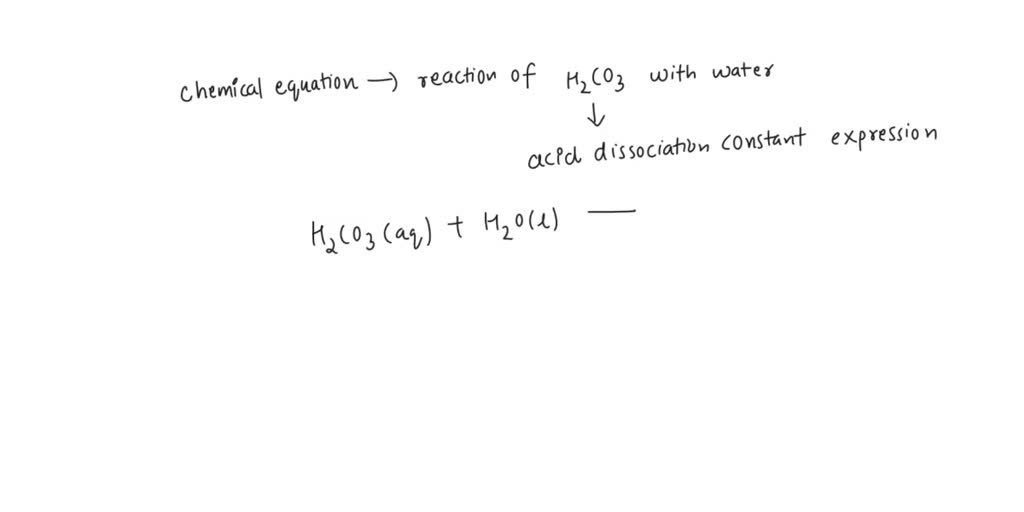 chemical equation → reaction of H₂CO₃ with water
↓
acid dissociation constant expression
H₂CO₃(aq) + H₂O(l) —